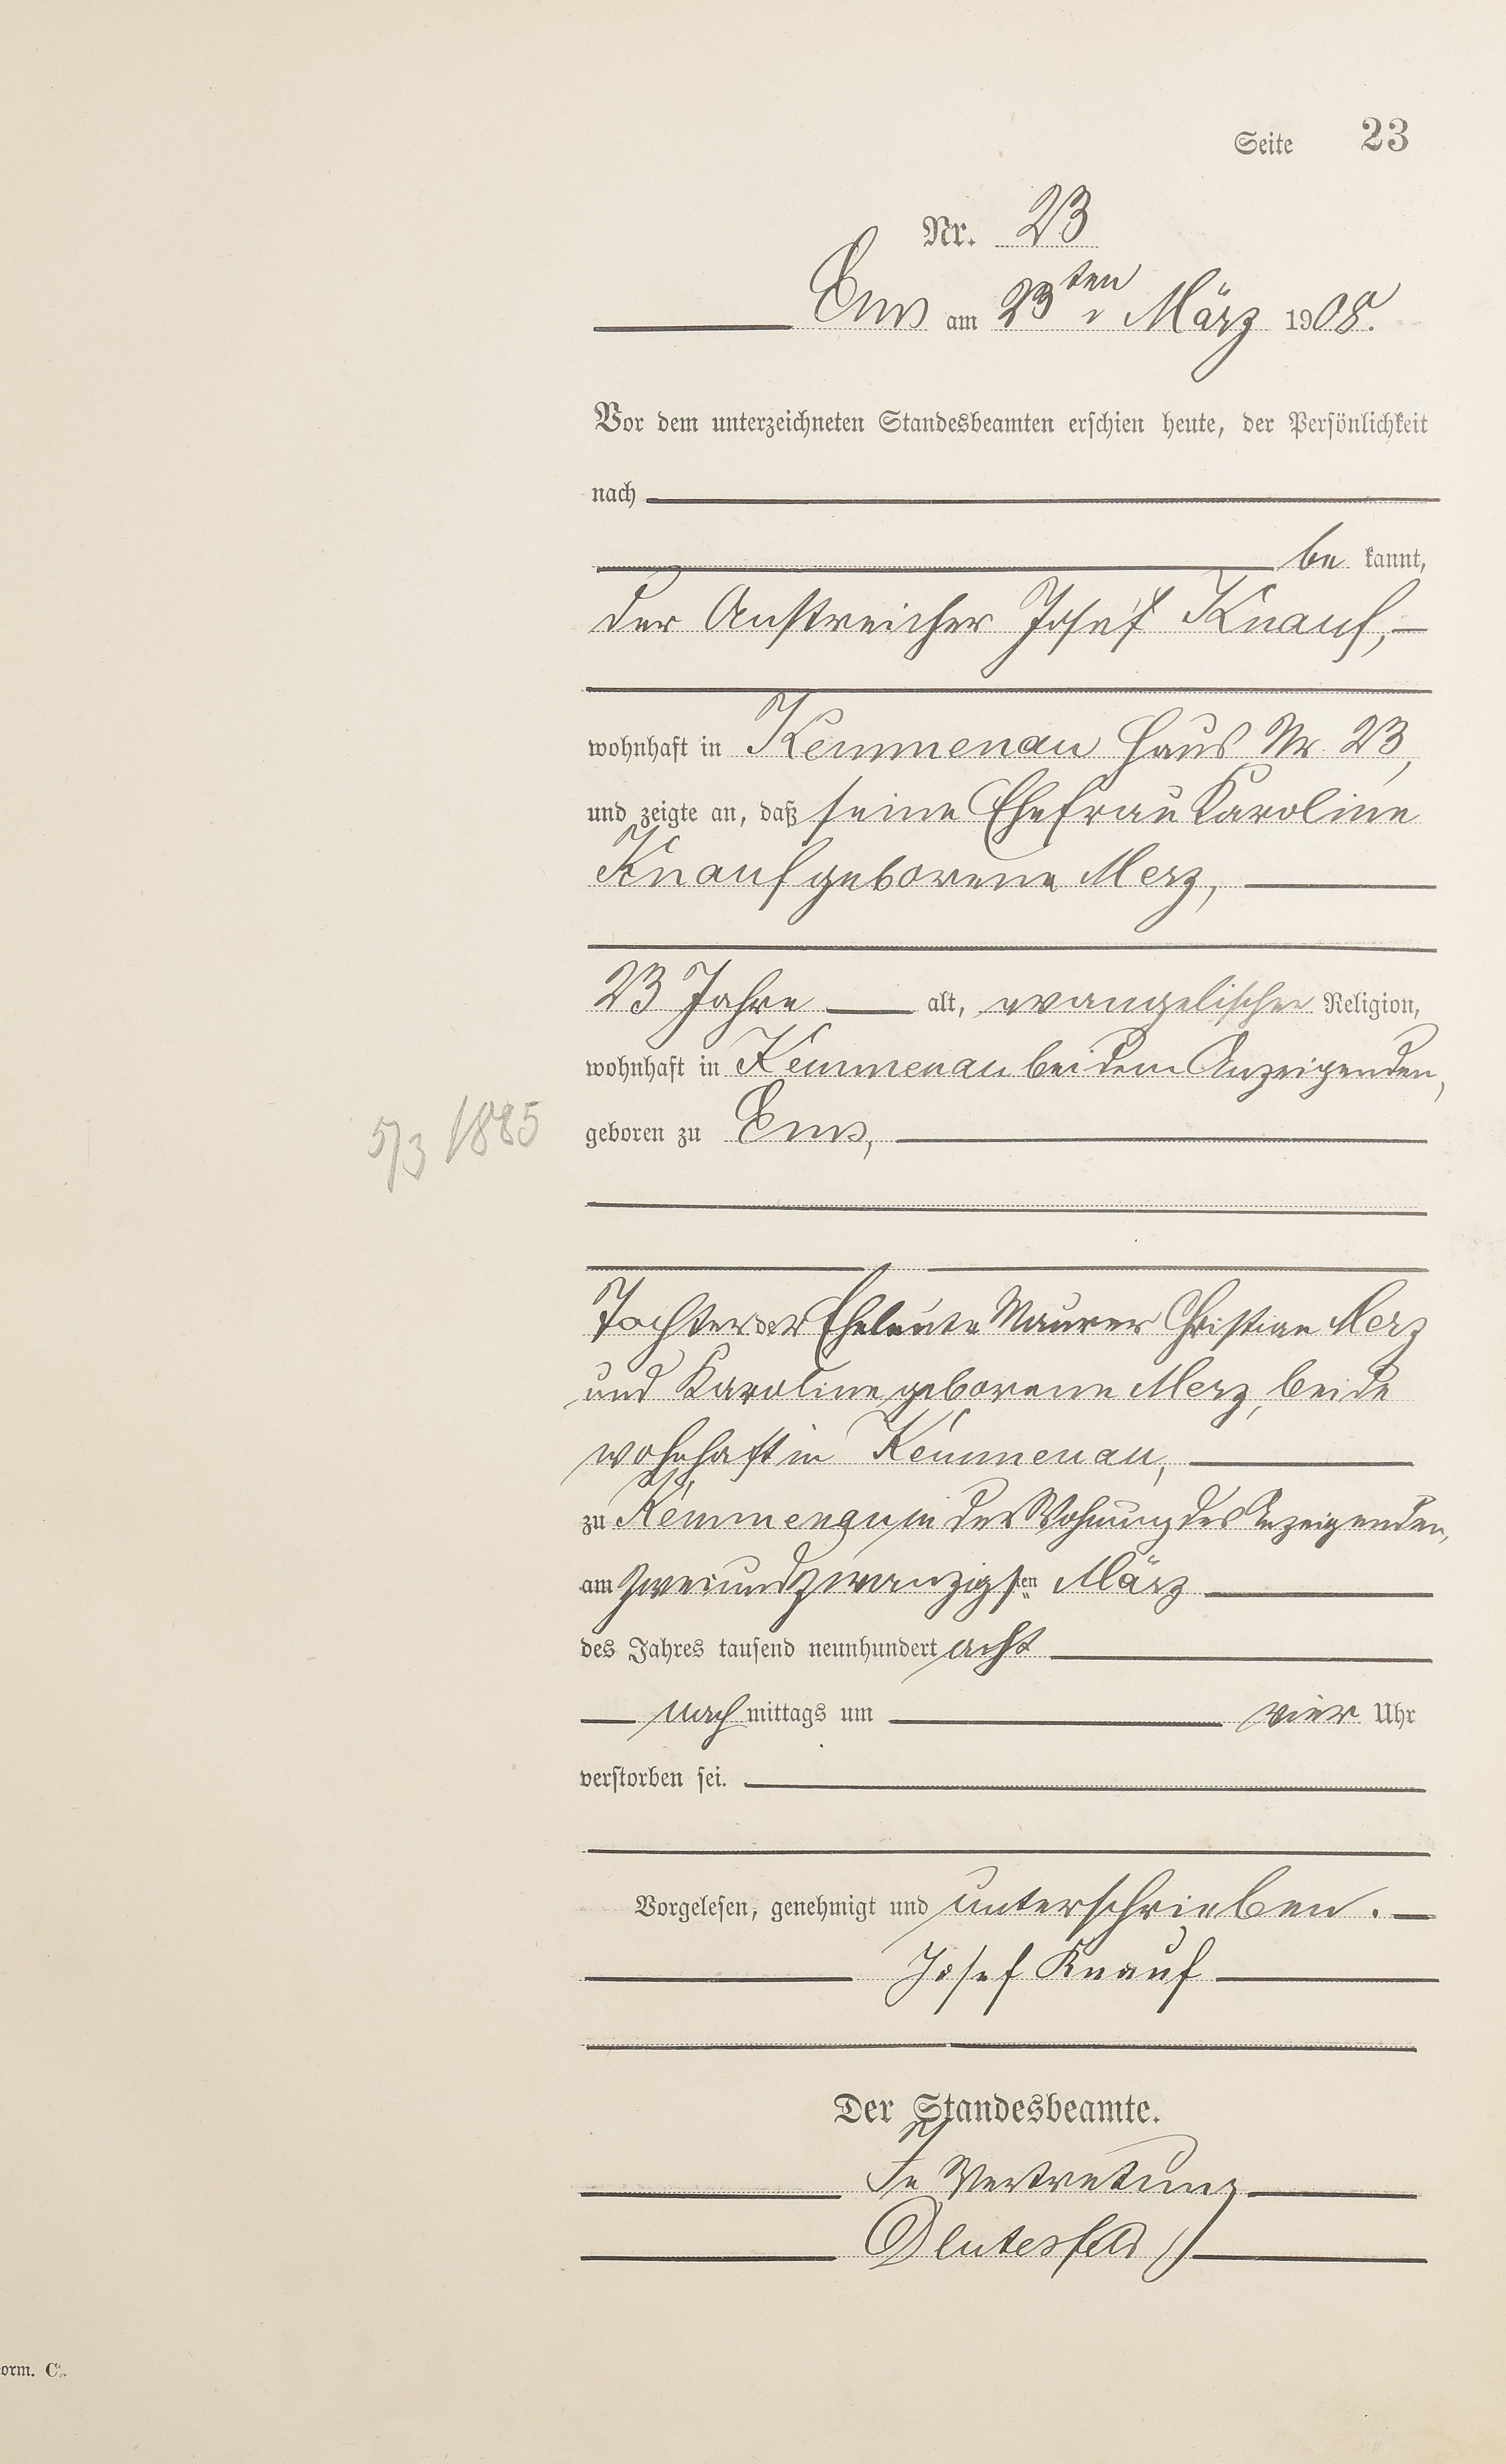 Seite 23
Nr. 23
Ems am 23ten März 1908.
Vor dem unterzeichneten Standesbeamten erschien heute, der Persönlichkeit
nach
be kannt,
der Anstreicher Josef Knauf,
wohnhaft in Kemmenau Haus Nr. 23,
und zeigte an, daß seine Ehefrau Karoline
Knauf geborene Merz,
23 Jahre alt, evangelischer Religion,
wohnhaft in Kemmenau bei dem Anzeigenden,
5/3 1885
geboren zu Ems,
Tochter der Eheleute Maurer Christian Merz
und Karoline geborene Merz, beide
wohnhaft in Kemmenau,
zu Kemmenau in der Wohnung des Anzeigenden,
am zweiundzwanzigsten März
des Jahres tausend neunhundert acht
nach mittags um vier Uhr
verstorben sei.
Vorgelesen, genehmigt und unterschrieben.
Josef Knauf
Der Standesbeamte.
In Vertretung
orm. C.